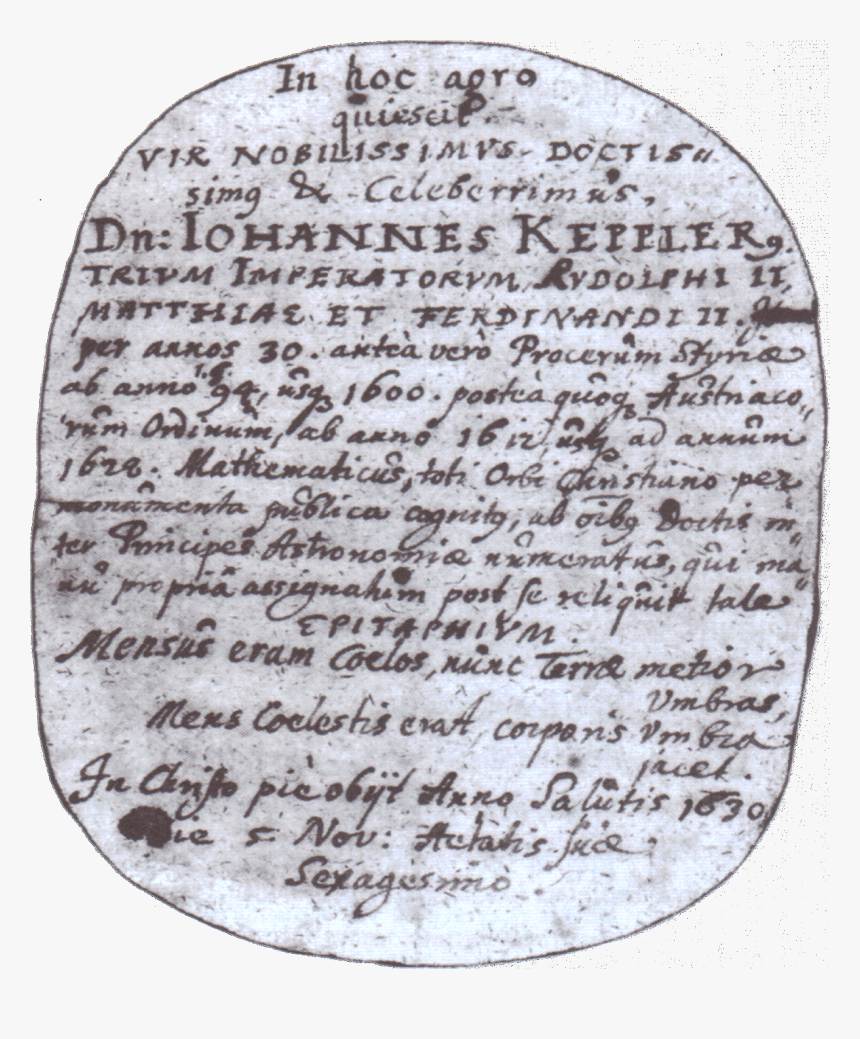 In hoc agro
quiescit
VIR NOBILISSIMVS DOCTIS〃
simꝰ & Celeberrimus,
Dn: IOHANNES KEPPLERꝰ.
TRIVM IMPERATORVM, RVDOLPHI II,
MATTHIAE ET FERDINANDI II.
per annos 30. anteà verò Procerûm Styriæ
ab anno 94, usqꝫ 1600. posteà quoqꝫ Austriaco〃
rûm Ordinûm, ab anno 1612 usqꝫ ad annûm
1628. Mathematicûs, toti Orbi Christiano per
monûmenta pûblica cognitꝰ, ab oibꝰ Doctis in〃
ter Principes Astronomiæ nûmeratûs, qûi ma〃
nû propriâ assignatûm post se reliqûit tale
EPITAPHIVM.
Mensûs eram Coelos, nûnc Terræ metior
Vmbras,
Mens Coelestis erat, corporis Vmbra
jacet.
In Christo piè obijt Anno Salûtis 1630,
die 5 Nov: Aetatis suæ
Sexagesimo